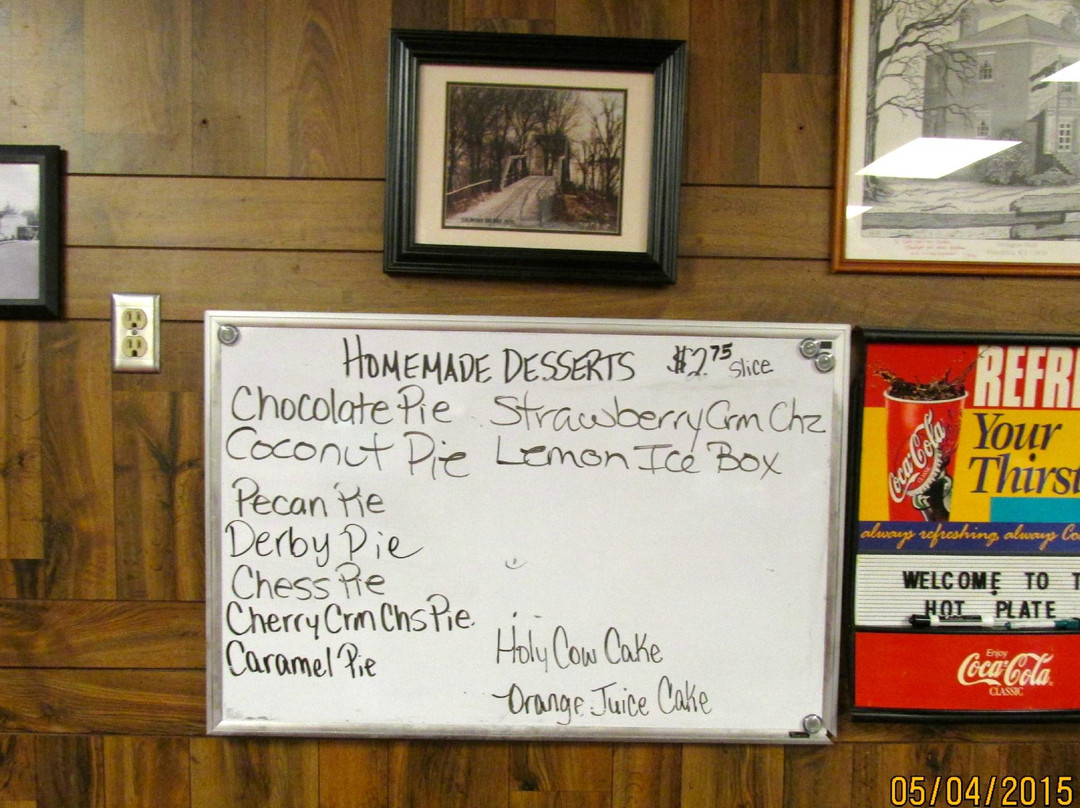 HOMEMADE DESSERTS $2.75 slice
Chocolate Pie
Coconut Pie
Pecan Pie
Derby Pie
Chess Pie
Cherry Crm Chs Pie
Caramel Pie
Strawberry Crm Chz
Lemon Ice Box
Holy Cow Cake
Orange Juice Cake
REFR
Your
Thirst
Coca-Cola
always refreshing, always Co
WELCOME TO T
HOT PLATE
Enjoy
Coca-Cola
CLASSIC
05/04/2015